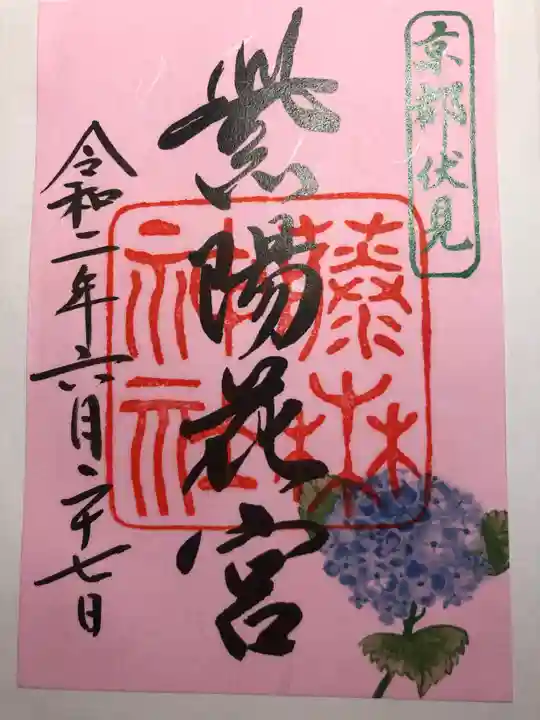 京都伏見
紫陽花宮
藤森
神社
令和二年六月二十七日